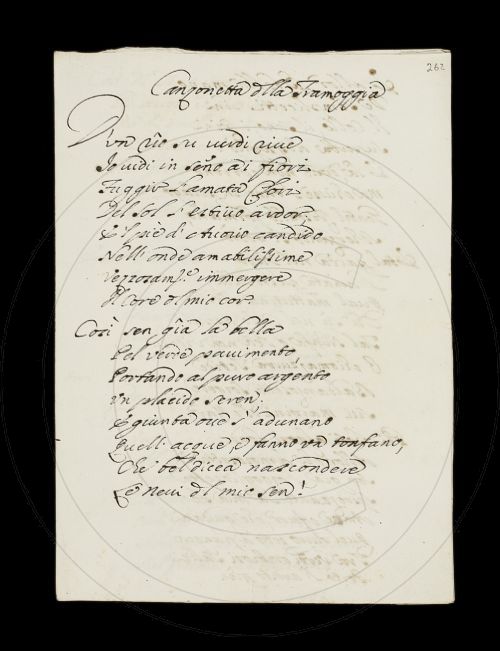 262
Canzonetta della Tramoggia
D'un rio su verdi rive
Io vidi in seño a i fiori
Fuggir l'amata Clori
Del Sol l'estivo ardor;
E'l piè d'avorio candido
Nell'onde amabilissime
vezzosam.e immergere
Il Core del mio cor.
Così sen gìa la bella
Pel verde pavimento,
Portando al puro argento
Un placido seren.
E giunta ove s'adunano
Quell'acque, e fanno un tonfano,
Chi del dicea nascondere
Le Nevi del mio sen!